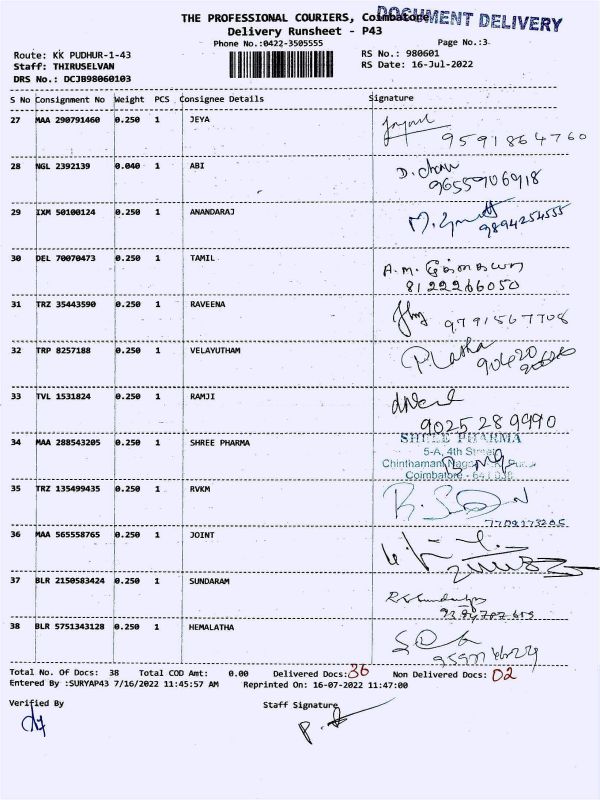 THE PROFESSIONAL COURIERS, Coimbatore
DOCUMENT DELIVERY
Delivery Runsheet - P43
Phone No.:0422-3505555
Page No.:3
Route: KK PUDHUR-1-43
RS No.: 980601
Staff: THIRUSELVAN
RS Date: 16-Jul-2022
DRS No.: DCJB98060103
S No Consignment No Weight PCS Consignee Details Signature
27 MAA 290791460 0.250 1 JEYA
9591864760
28 NGL 2392139 0.040 1 ABI
9655906918
29 IXM 50100124 0.250 1 ANANDARAJ
9894254555
30 DEL 70070473 0.250 1 TAMIL
A.M.
8122266050
31 TRZ 35443590 0.250 1 RAVEENA
9791567708
32 TRP 8257188 0.250 1 VELAYUTHAM
P. Latha
33 TVL 1531824 0.250 1 RAMJI
9025289990
34 MAA 288543205 0.250 1 SHREE PHARMA
SHREE PHARMA
5-A, 4th Street
Chinthamani Nagar
Coimbatore - 641 038
35 TRZ 135499435 0.250 1 RVKM
36 MAA 565558765 0.250 1 JOINT
37 BLR 2150583424 0.250 1 SUNDARAM
38 BLR 5751343128 0.250 1 HEMALATHA
Total No. Of Docs: 38 Total COD Amt: 0.00 Delivered Docs: 36 Non Delivered Docs: 02
Entered By :SURYAP43 7/16/2022 11:45:57 AM Reprinted On: 16-07-2022 11:47:00
Verified By
Staff Signature